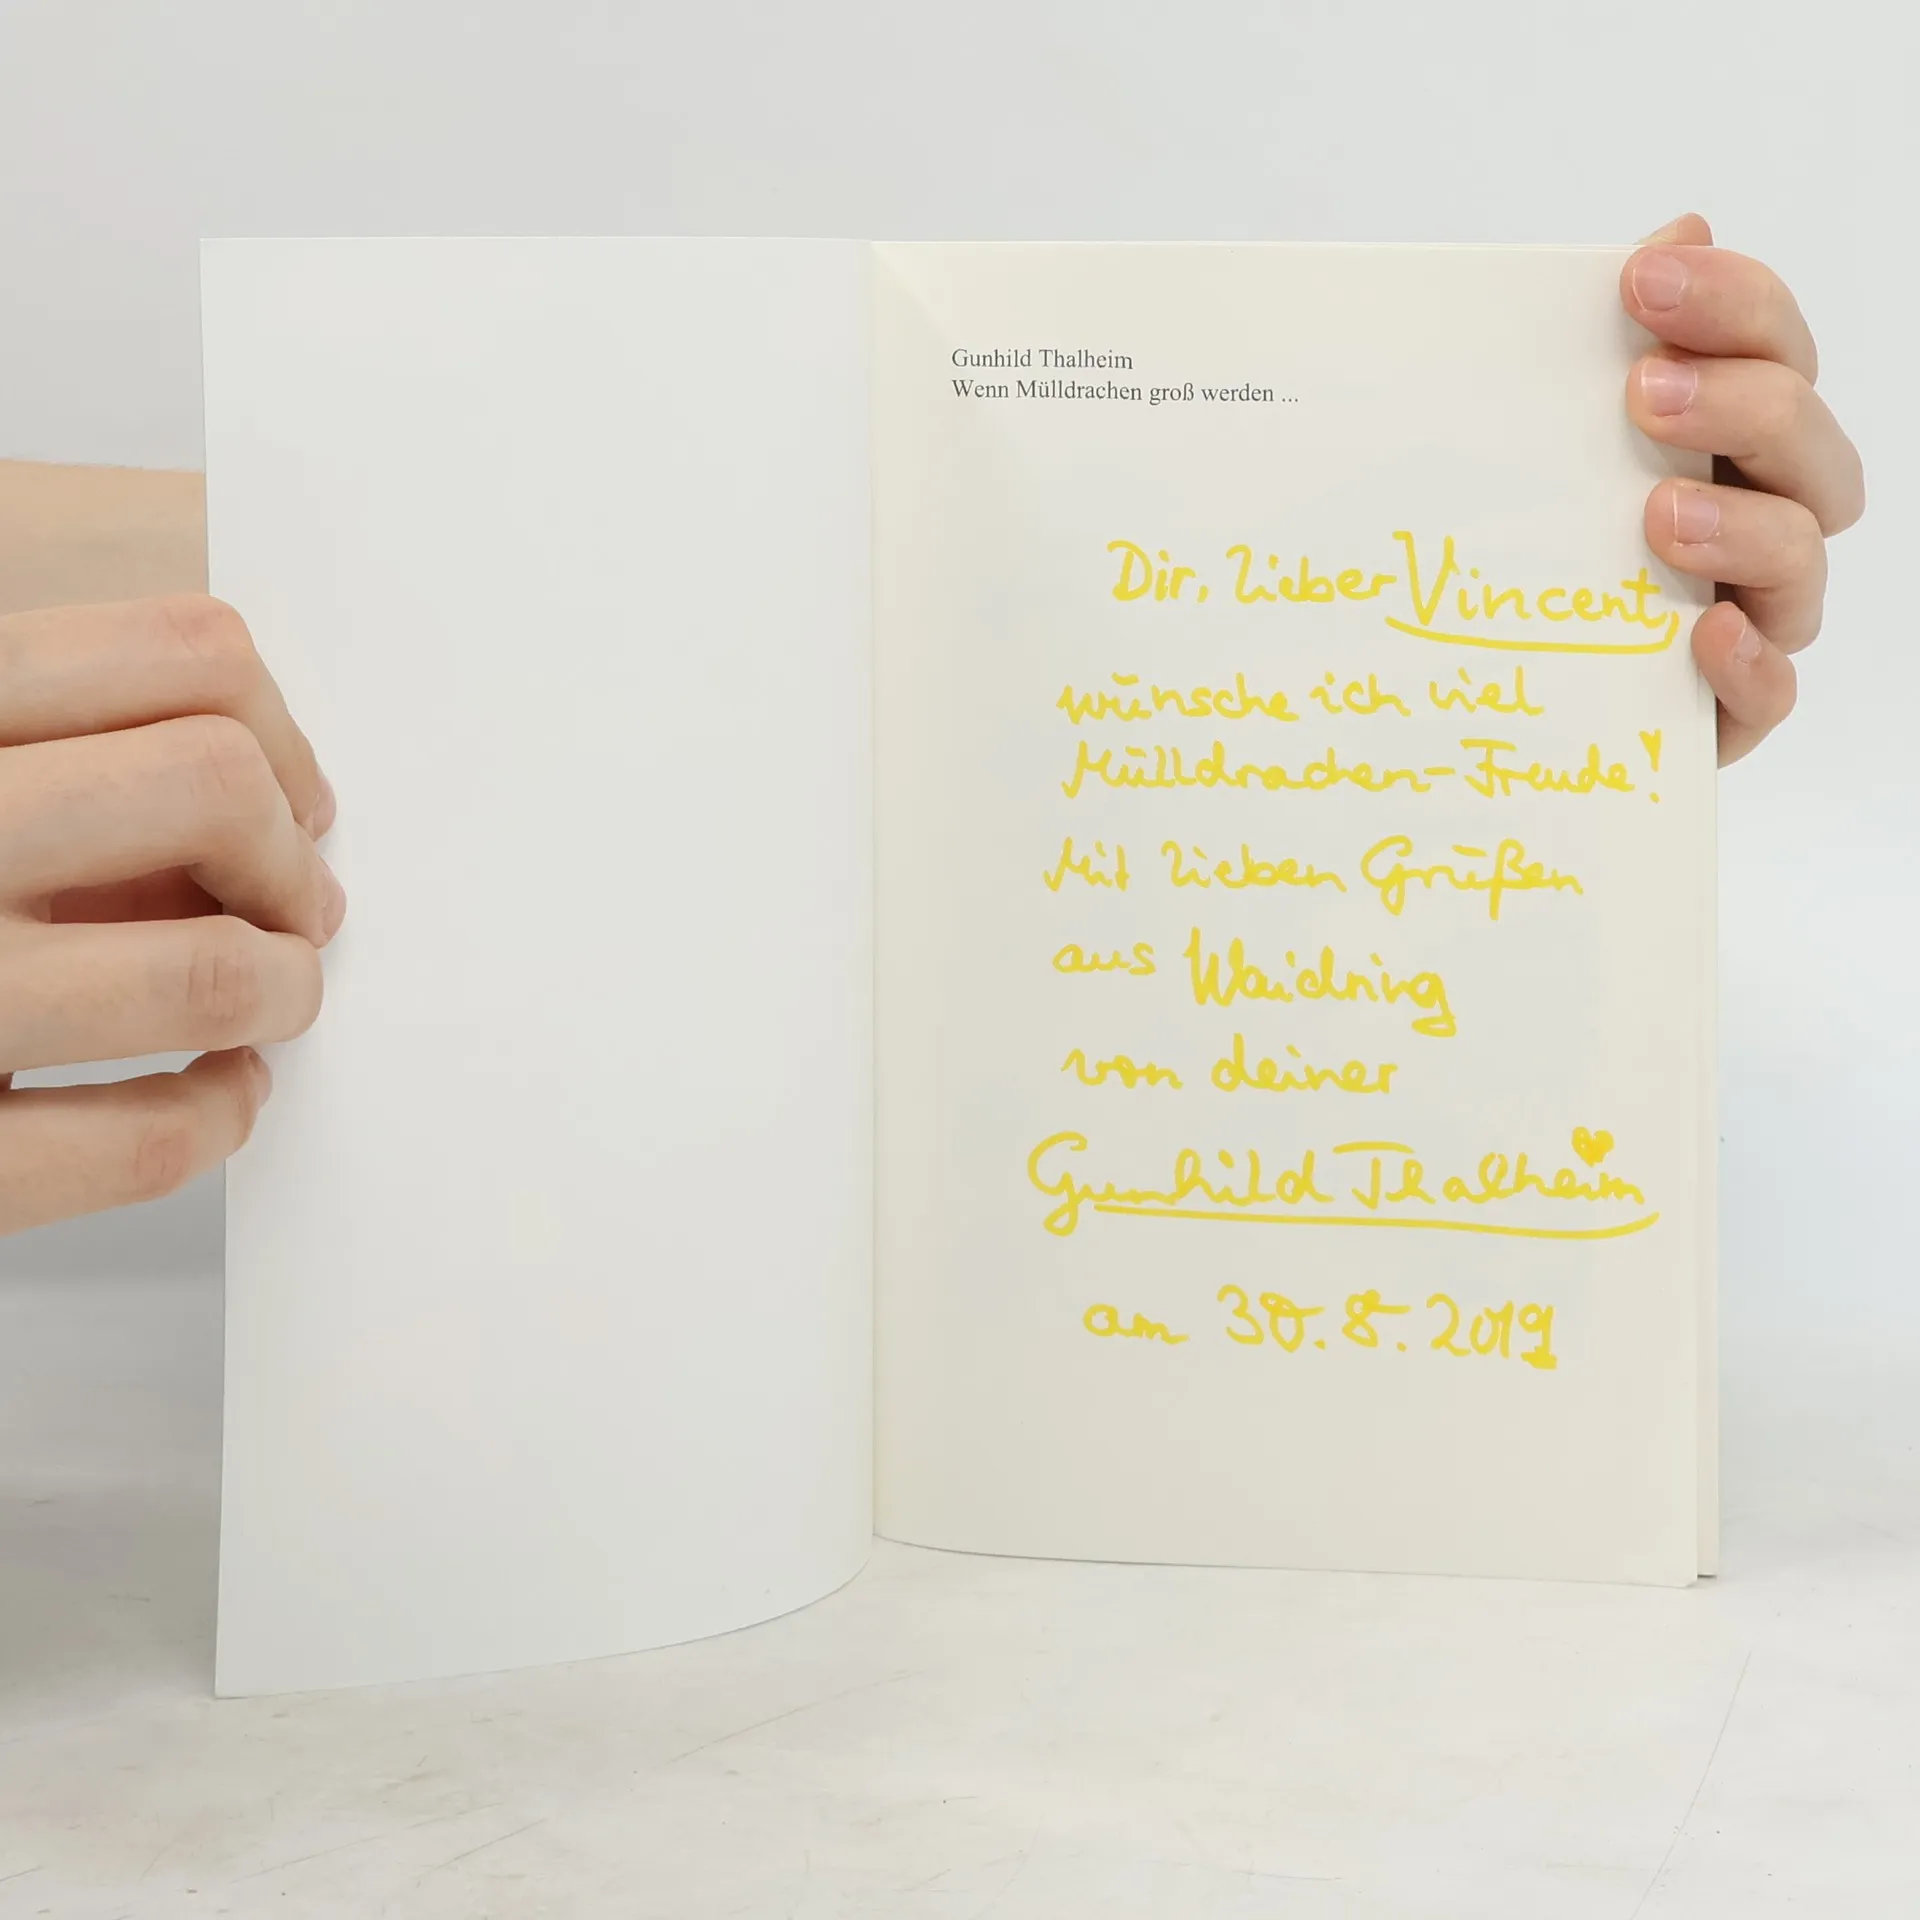 Gunhild Thalheim
Wenn Mülldrachen groß werden ...
Dir, lieber Vincent,
wünsche ich viel
Mülldrachen-Freude!
Mit lieben Grüßen
aus Waidring
von deiner
Gunhild Thalheim
am 30.8.2019